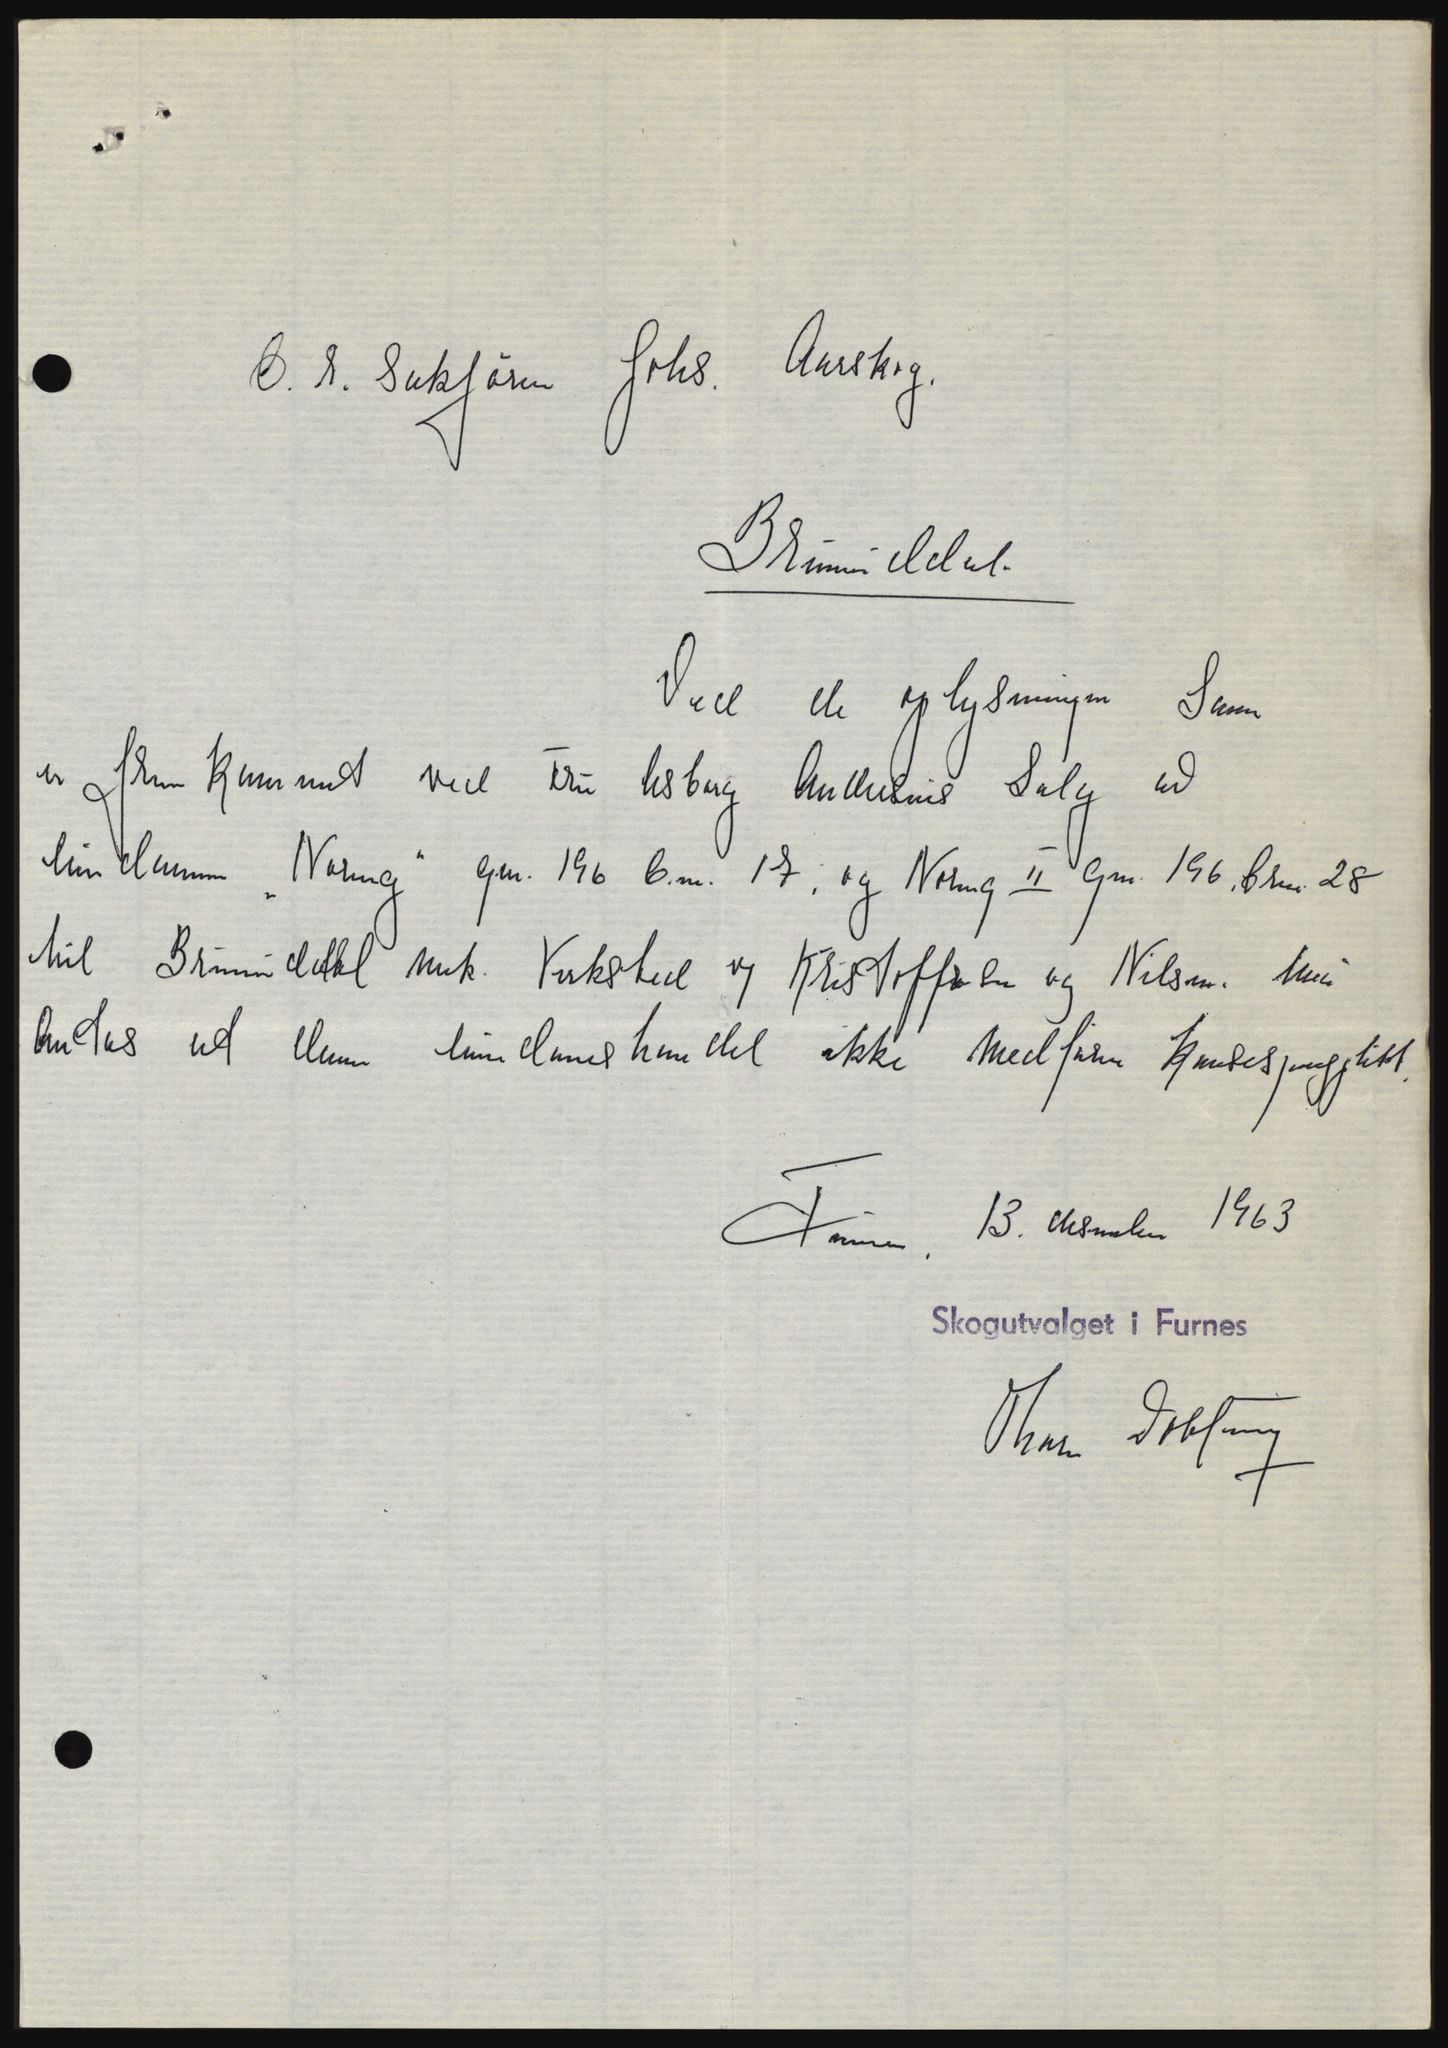 O. r. Sakfører Johs. Aarskog.
Brumunddal.
Ved de oplysninger som
er fremkommet ved Fru Asborg Andersens Salg av
eiendommen „Noring" gnr. 196 b.nr. 17, og Noring II gnr. 196, bnr. 28
til Brumunddal mek. Verksted og Kristoffersen og Nilsen. Maa
antas at denne eiendomshandel ikke medfører konsesjonsplikt.
Furnes, 13. desember 1963
Skogutvalget i Furnes
Thor